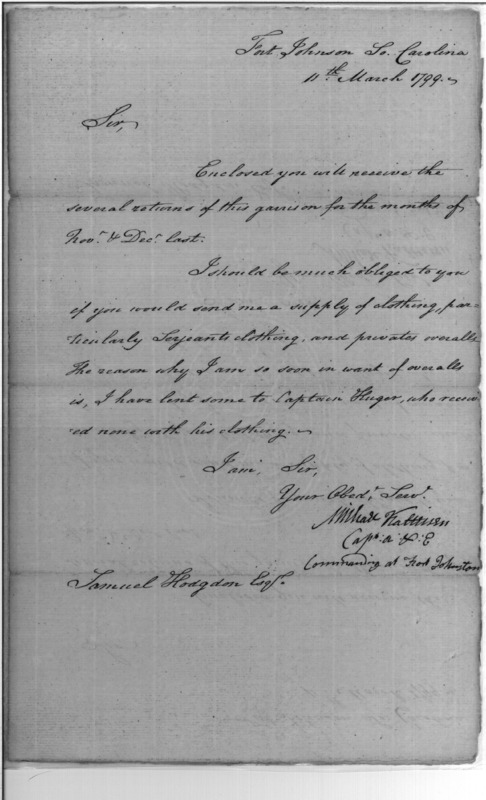 Fort Johnson So. Carolina
11th March 1799.
Sir,
Enclosed you will receive the
several returns of this garrison for the months of
Novr. & Decr. last.
I should be much obliged to you
if you would send me a supply of clothing, par-
ticularly Serjeants clothing, and privates overalls
The reason why I am so soon in want of overalls
is, I have lent some to Captain Huger, who receiv-
ed none with his clothing.
I am, Sir,
Your Obedt. Servt.
Michael Kalteisen
Capt. A & E
Commanding at Fort Johnston
Samuel Hodgdon Esqr.